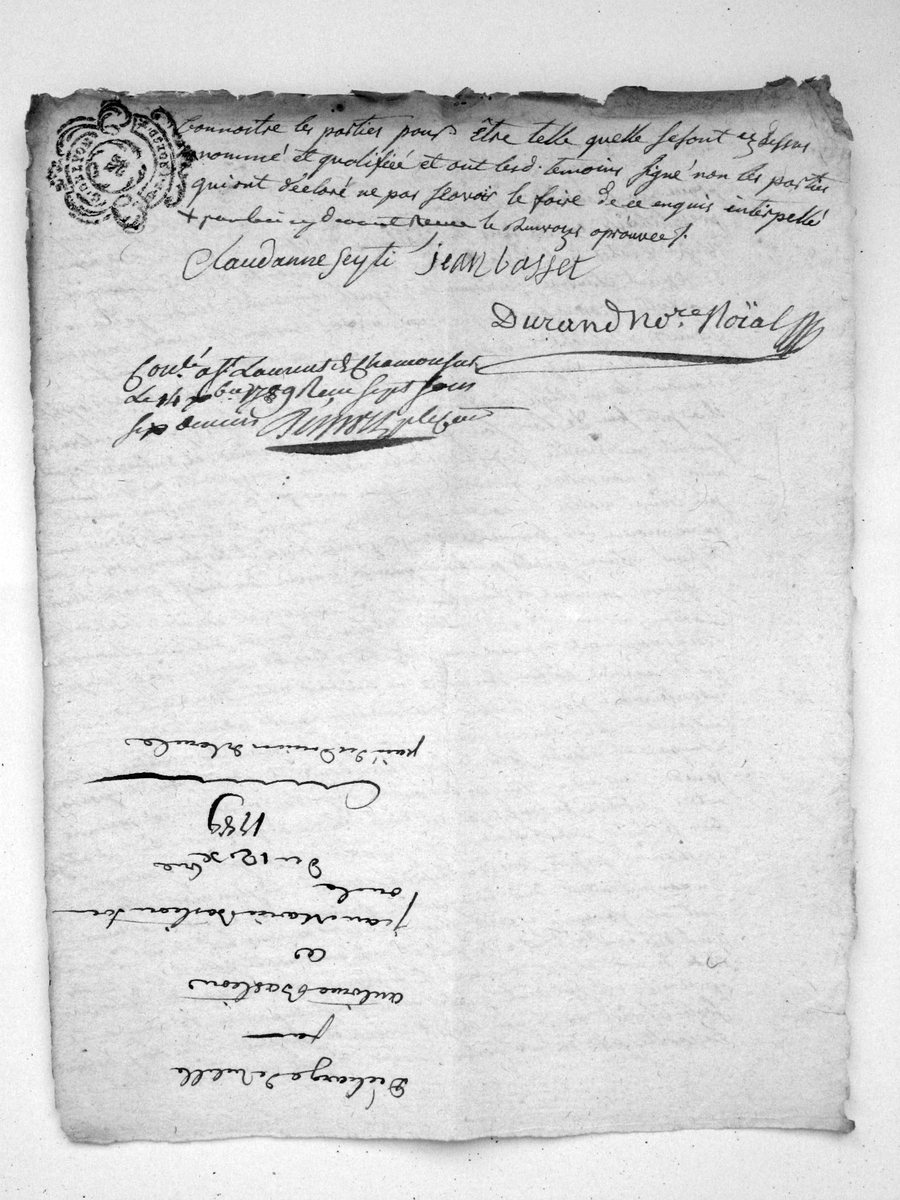 connoitre les parties pour être telle quelle se sont cy dessus
nommé et qualifiée et ont lesd. temoins signé non les parties
qui ont déclaré ne pas scavoir le faire de ce enquis interpellé
le aprouvee
Claudanne Seyti jean basset
Durand No.re Roïal
Con.lé à St Laurent de Chamousset
Le 14 xbre 1789 Reçu sept sous
six deniers
Décharge de
par
antoine Basleon
a
jean Marie Basleon son
oncle
Du 12 xbre
1789